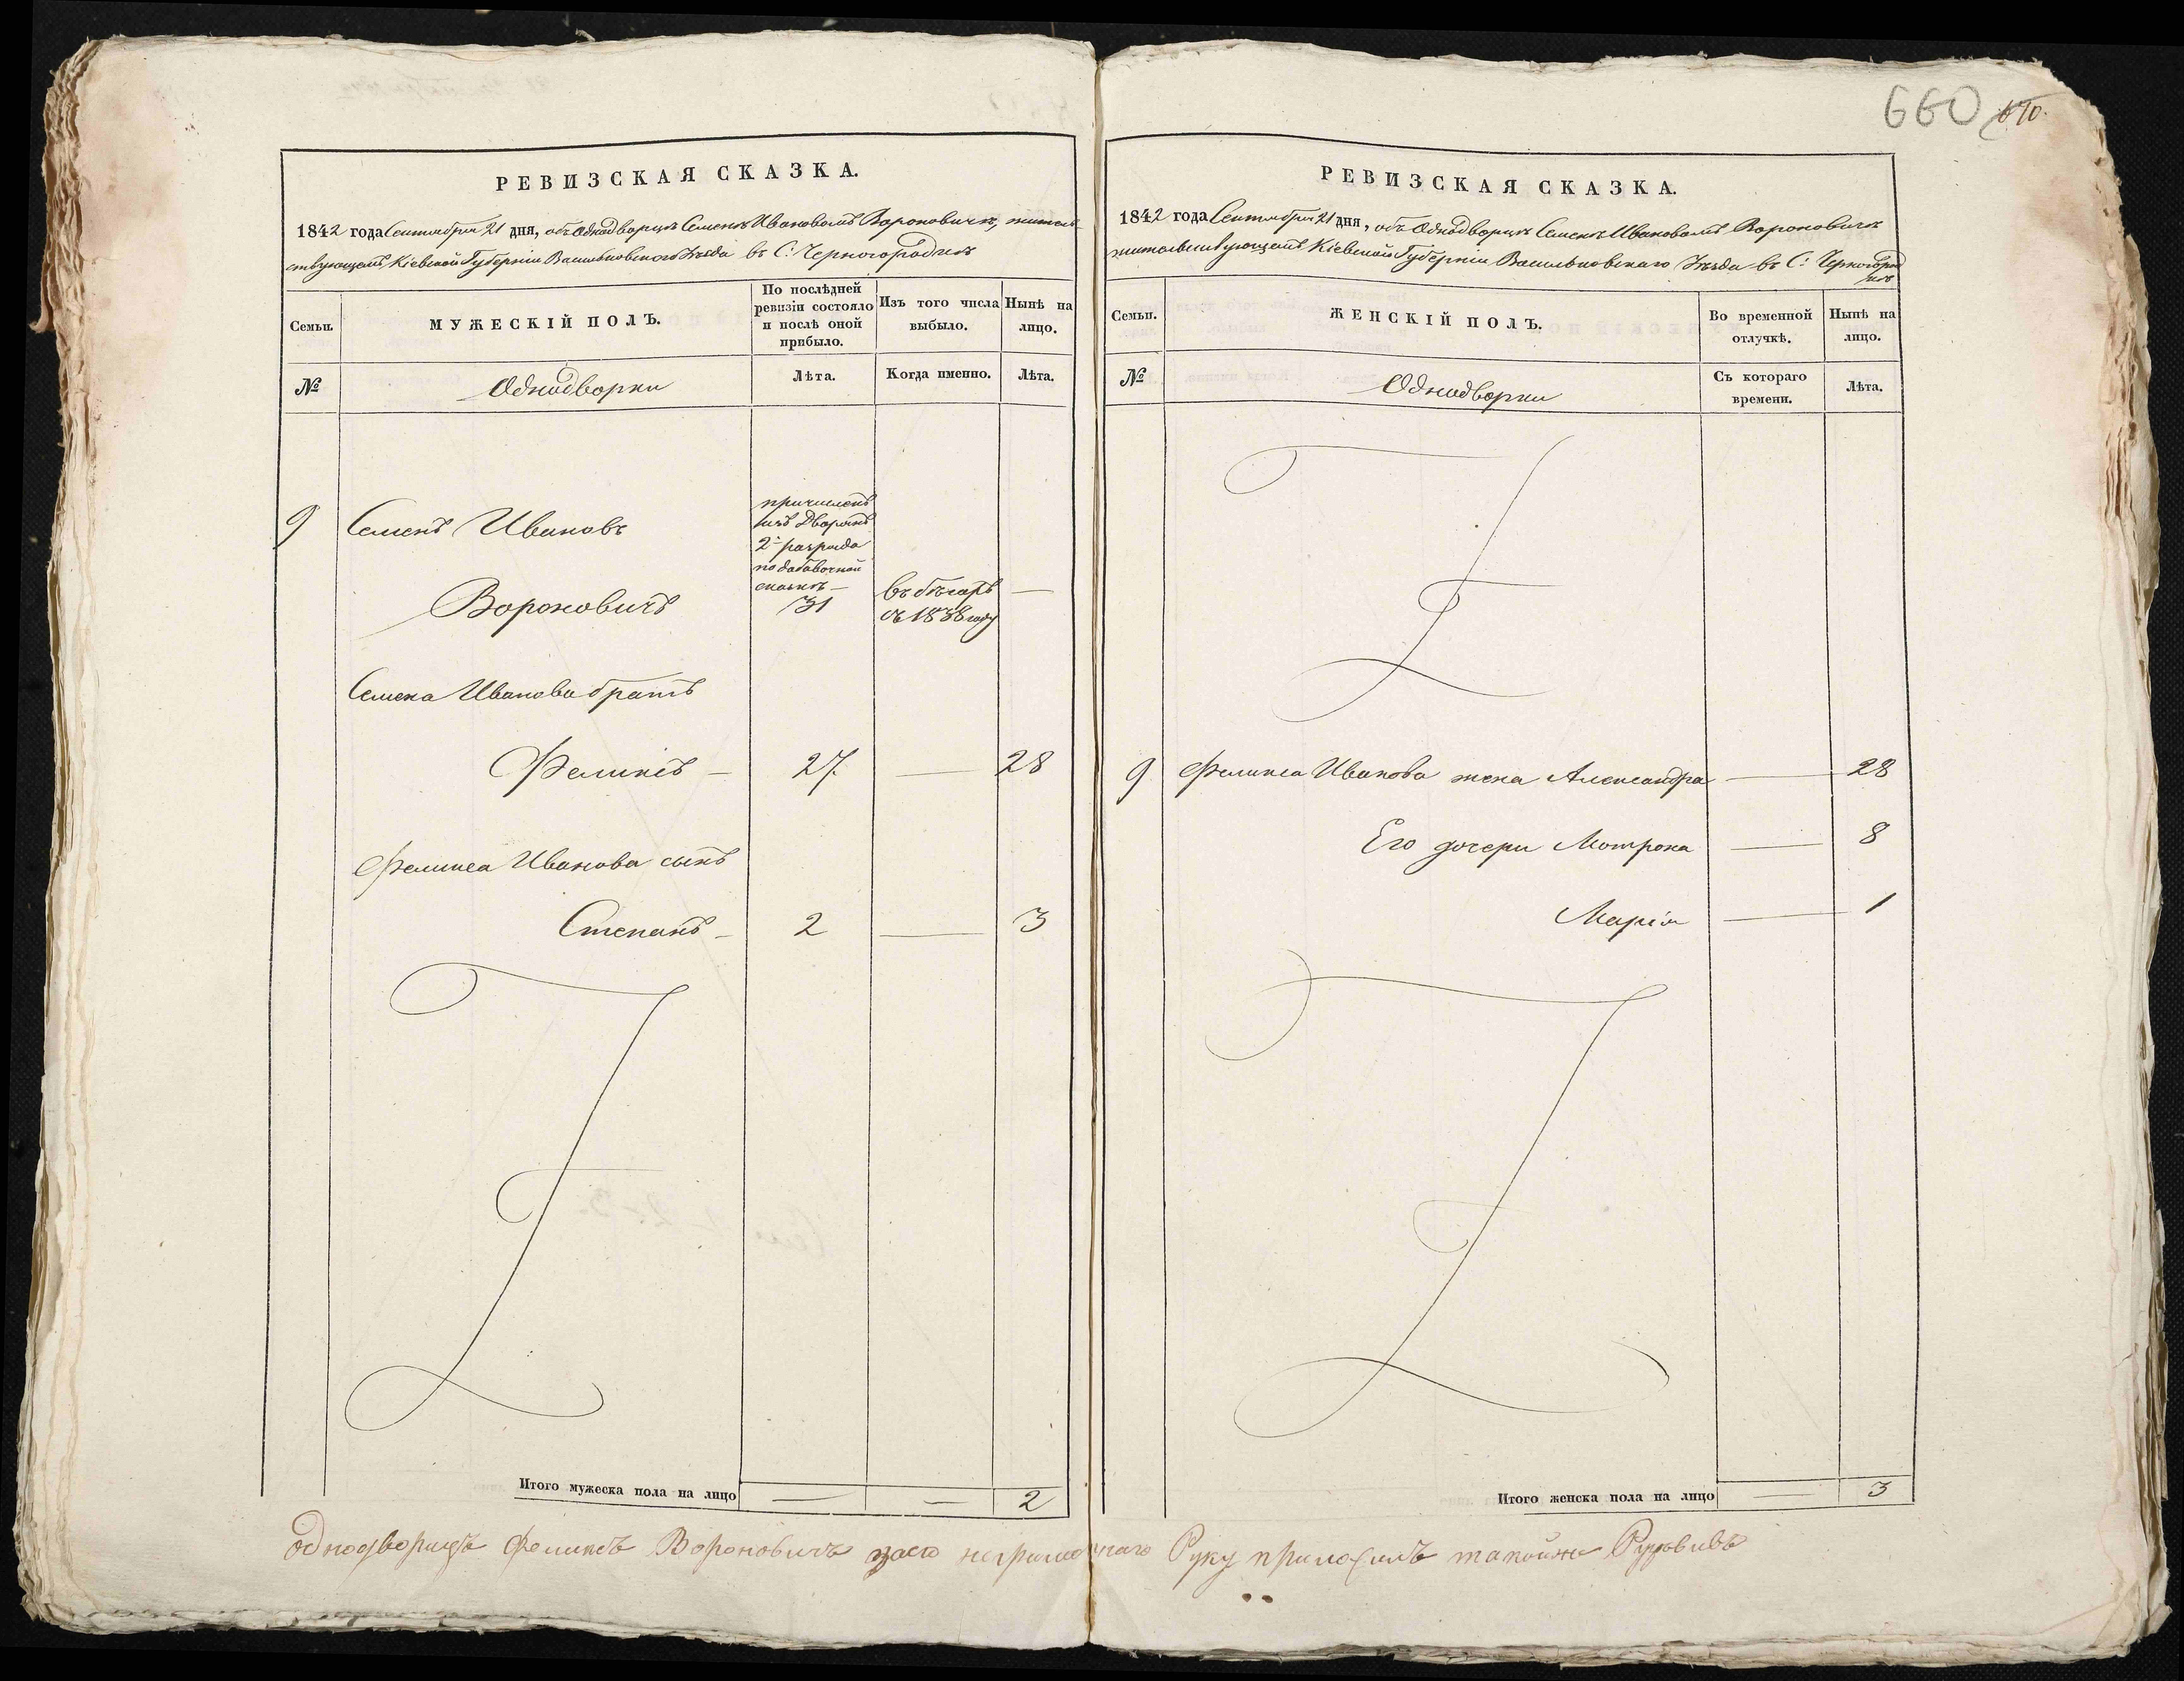 660 670.
РЕВИЗСКАЯ СКАЗКА.
1842 года Сентября 21 дня, объ Однодворцѣ Семенѣ Ивановомъ Вороновичѣ, житель-
ствующемъ Кіевской Губерніи Васильковского Уѣзда въ С: Черногородкѣ
Семьи.
МУЖЕСКІЙ ПОЛЪ.
По послѣдней
ревизіи состояло
и послѣ оной
прибыло.
Изъ того числа
выбыло.
Нынѣ на
лицо.
№
Однодворки
Лѣта.
Когда именно.
Лѣта.
9 Семенъ Ивановъ
Вороновичъ
причисленъ
изъ Дворянъ
2 разряда
по добавочной
сказкѣ —
31
въ бѣгахъ
съ 1838 году
—
Семена Иванова братъ
Феликсъ — 27. — 28
Феликса Иванова сынъ
Степанъ — 2 — 3
Итого мужеска пола на лицо — — 2
РЕВИЗСКАЯ СКАЗКА.
1842 года Сентября 21 дня, объ Однодворцѣ Семенѣ Ивановомъ Вороновичѣ
жительствующемъ Кіевской Губерніи Васильковскаго Уѣзда въ С: Черногород
кѣ
Семьи.
ЖЕНСКІЙ ПОЛЪ.
Во временной
отлучкѣ.
Нынѣ на
лицо.
№
Однодворки
Съ котораго
времени.
Лѣта.
9 Феликса Иванова жена Александра — 28
Его дочери Мотрона — 8
Марія — 1
Итого женска пола на лицо — 3
однодворицъ Феликсъ Вороновичъ заего неграмотнаго Руку приложилъ такойже